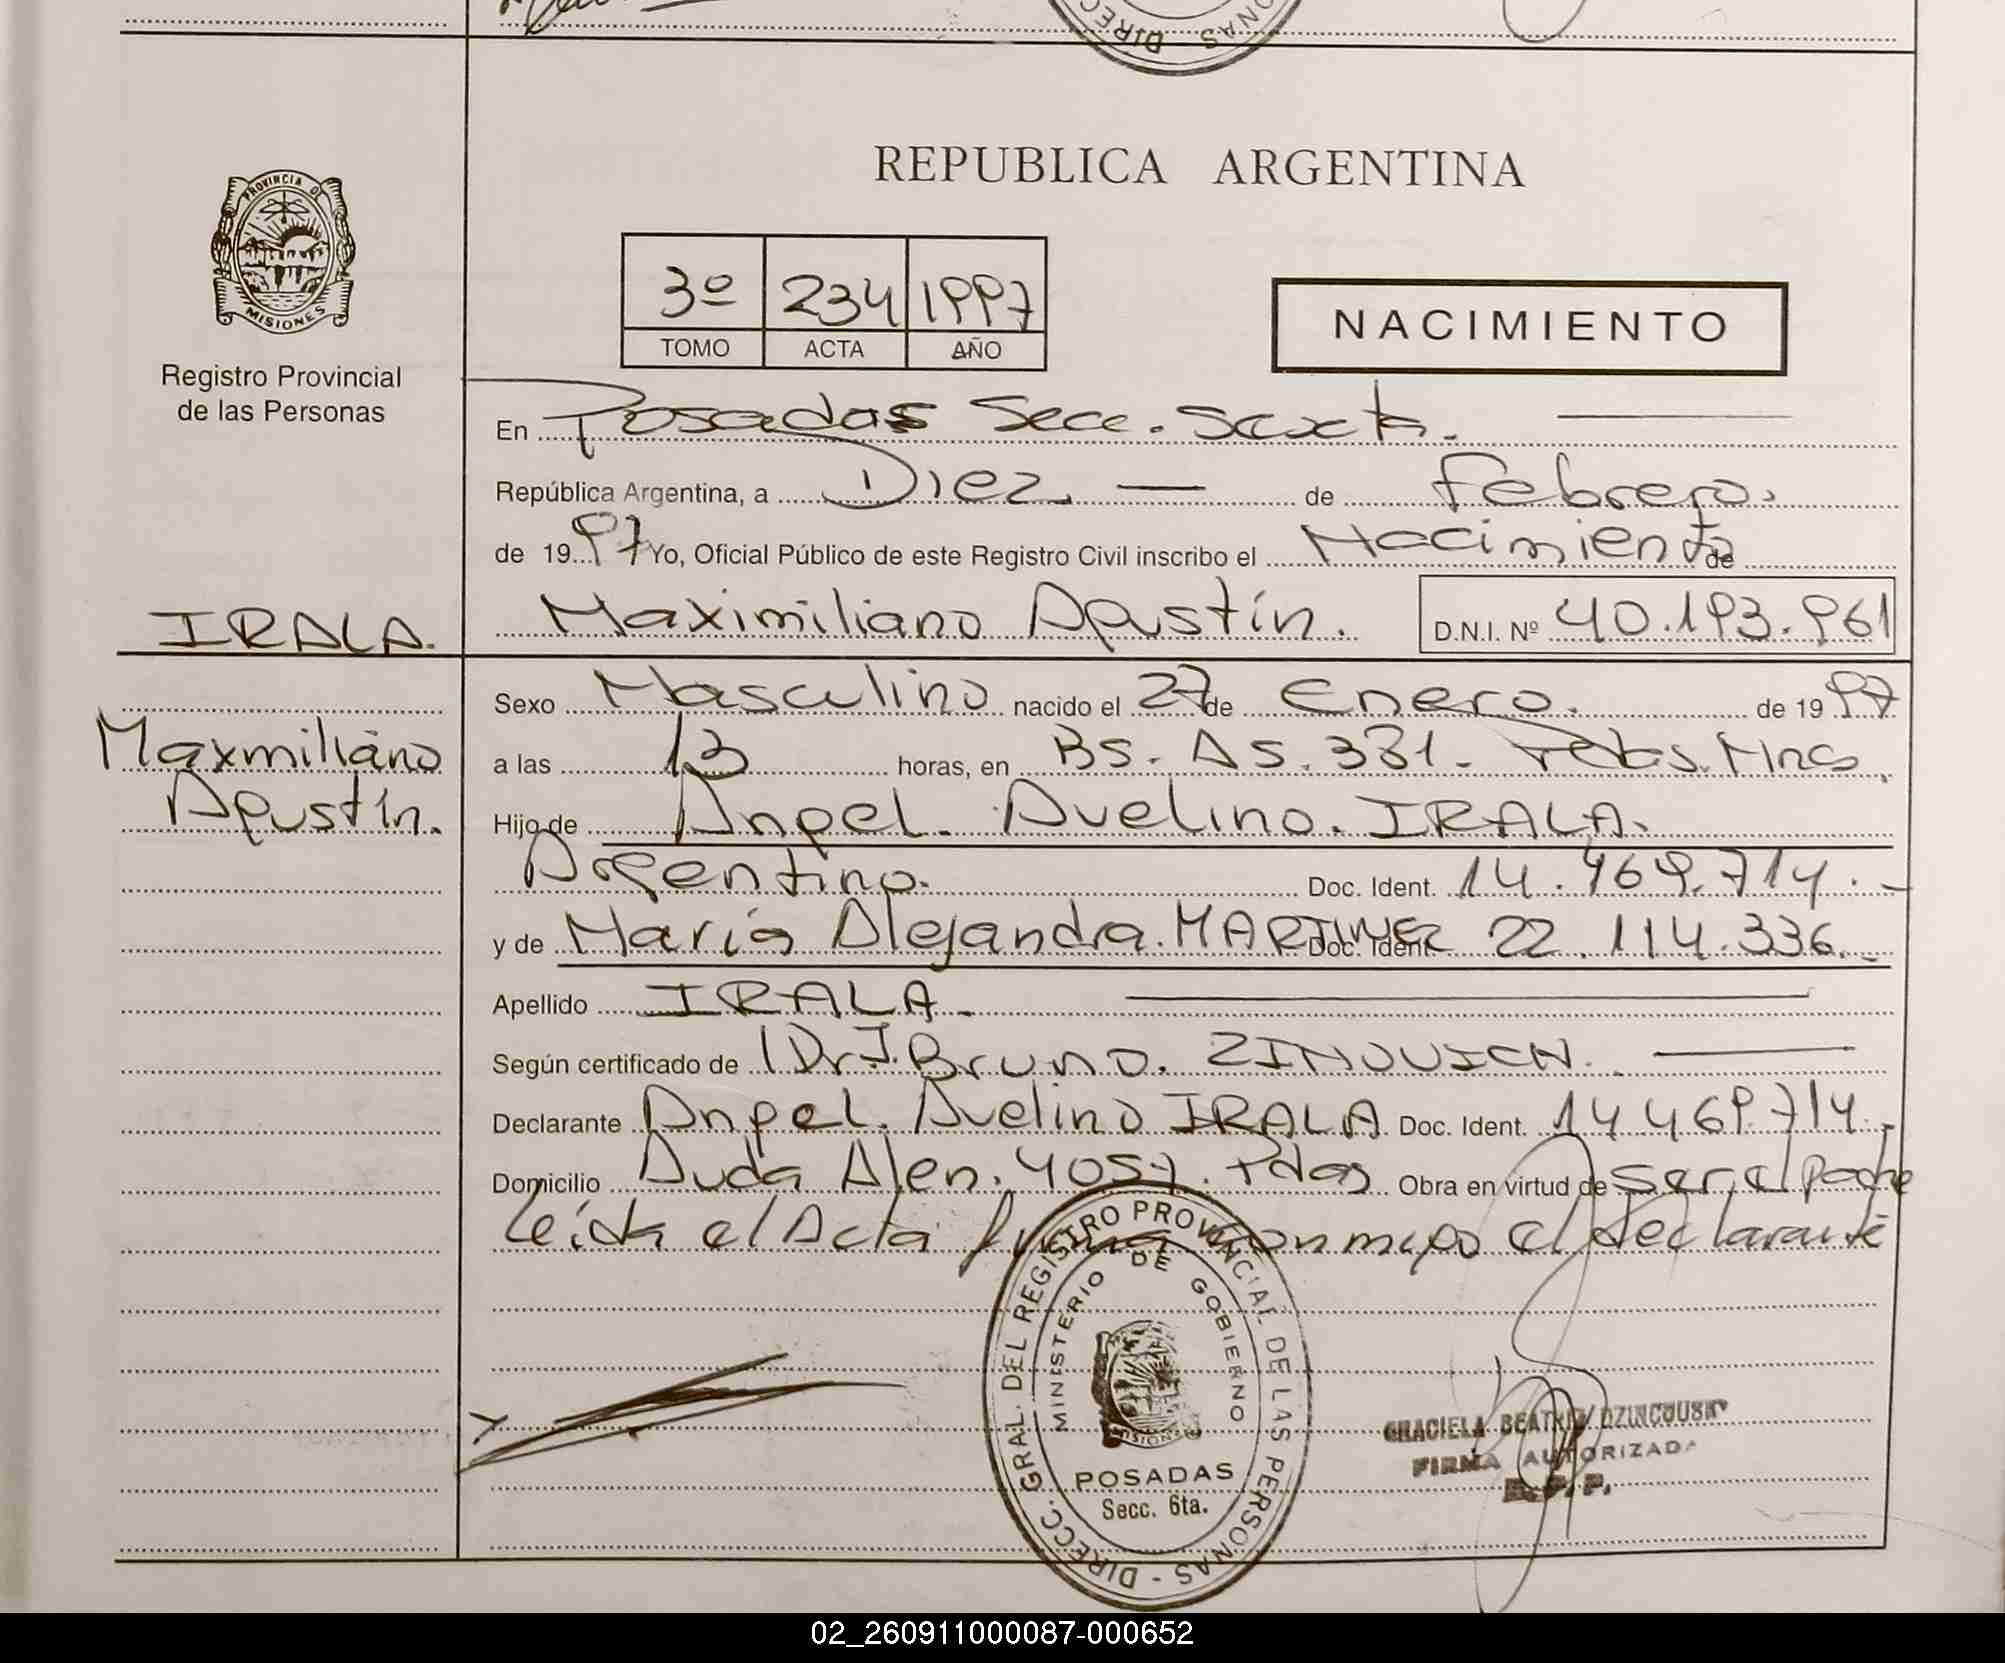 DIRECC
ONAS
PROVINCIA DE
MISIONES
Registro Provincial
de las Personas
REPUBLICA ARGENTINA
3º 234 1997
TOMO ACTA AÑO
NACIMIENTO
En Posadas Secc. Sexta.
República Argentina, a Diez — de Febrero.
de 1997 Yo, Oficial Público de este Registro Civil inscribo el Nacimiento de
IRALA. Maximiliano Agustín. D.N.I. Nº 40.193.961
Sexo Masculino nacido el 27 de Enero. de 1997
Maxmiliano
a las 13 horas, en BS. AS. 331. Pdas. Mnes.
Agustín.
Hijo de Angel. Avelino. IRALA.
Argentino. Doc. Ident. 14.469.714.-
y de María Alejandra. MARTINEZ Doc. Ident. 22.114.336.-
Apellido IRALA.
Según certificado de Dr. J. Bruno.
Declarante Angel. Avelino IRALA Doc. Ident. 14.469.714.-
Domicilio Avda Alen. 4057. Pdas Obra en virtud de ser el padre
leída el Acta firma conmigo el declarante
DIRECC. GRAL. DEL REGISTRO PROVINCIAL DE LAS PERSONAS -
MINISTERIO DE GOBIERNO
MISIONES
POSADAS
Secc. 6ta.
GRACIELA BEATRIZ
FIRMA AUTORIZADA
R.P.P.
02_260911000087-000652